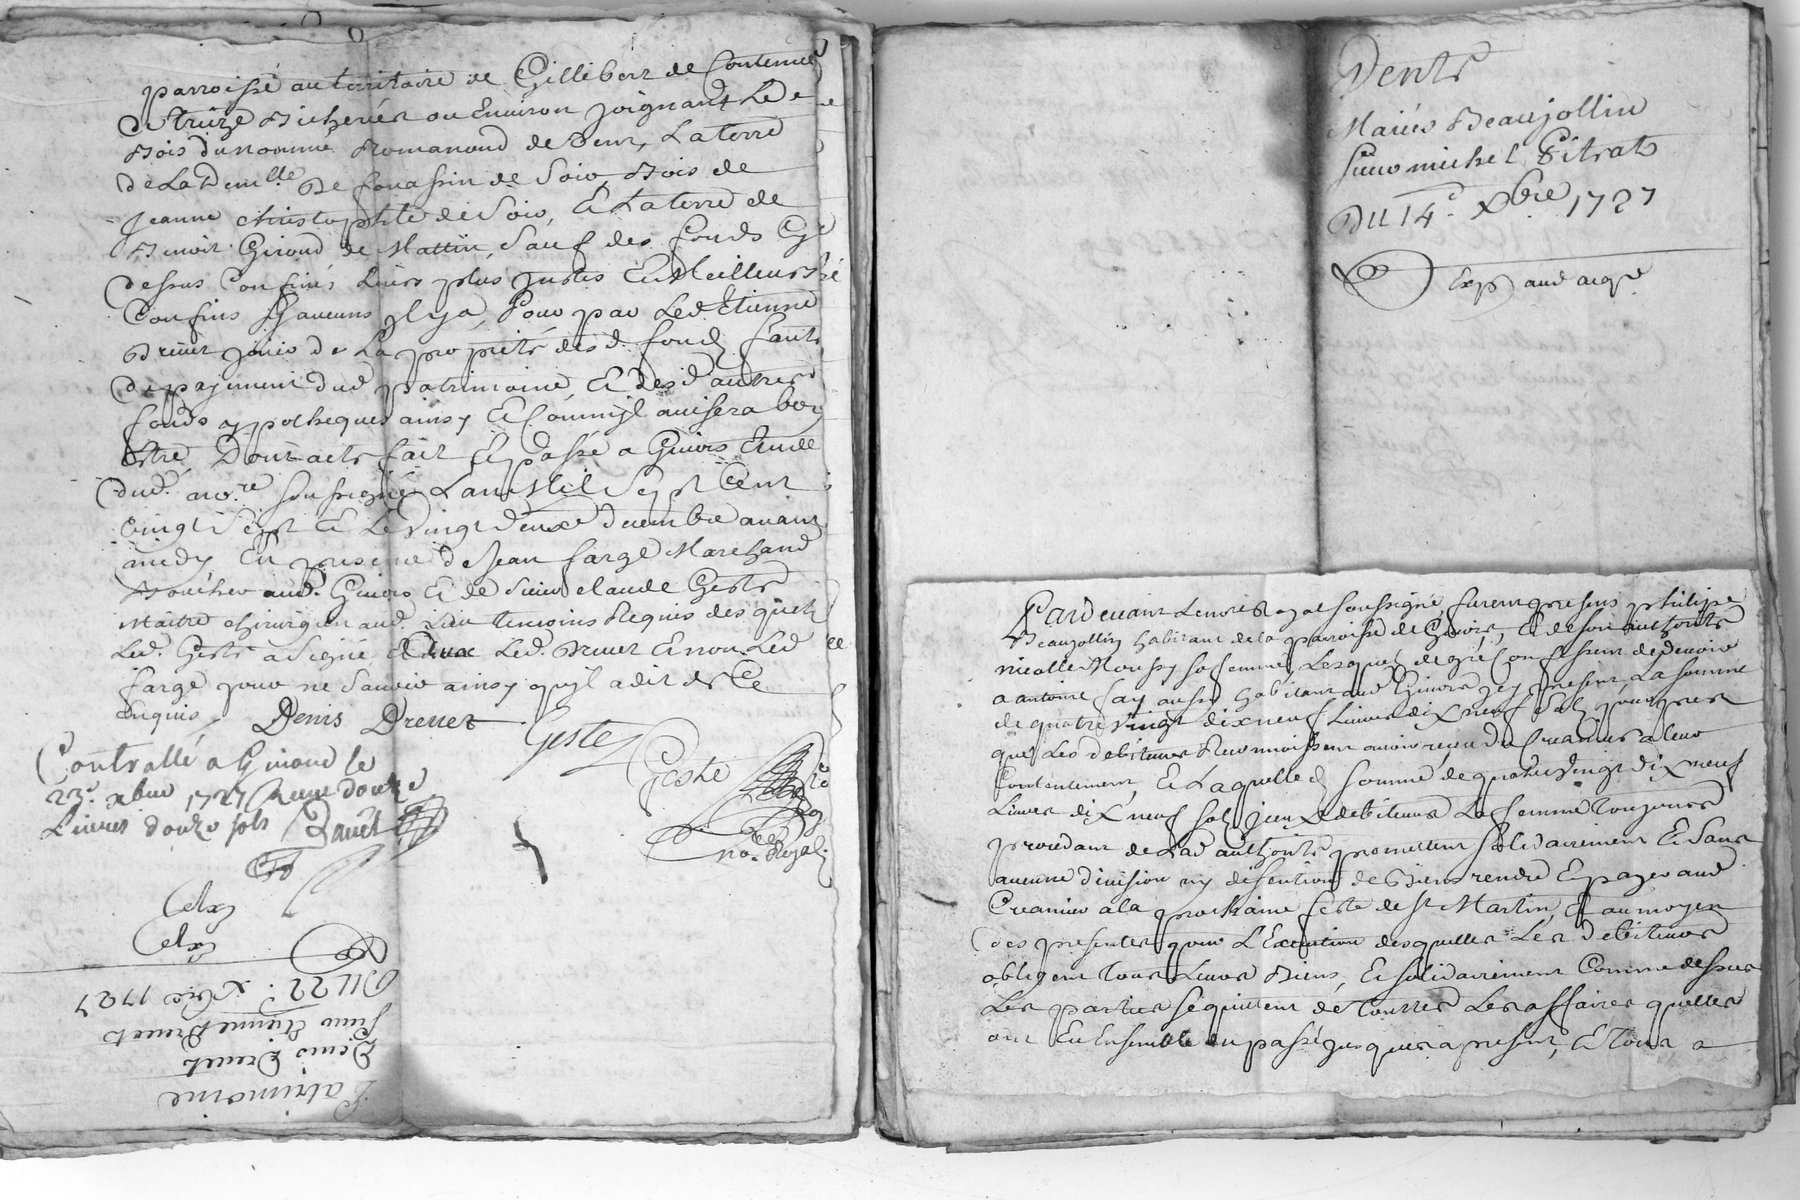 parroisse au territoire de Gillibert de Contenue
de treize Bicherées ou Environ joignant Le
Bois du nommé Romanand de vent, La terre
de La Dem.lle De fouassin de Soir, Bois de
Jeanne christophle de Soir, Et La terre de
Benoit Giroud de Mattin Sauf des fonds Cy
dessus Confinés Leurs plus justes Et Meilleurs
Confins Sy aucuns y a, Pour par Led Etienne
Drevet jouir de La propriété desd. fonds faute
de payement dud patrimoine Et desd autres
fonds ypothequés ainsy Et Comm'jl avisera bon
Estre, Dont acte fait Et passé a Givors Etude
dud. no.re soussigné Lan Mil Sept Cent
vingt Sept Et Le vingt deux.e decembre avant
midy, En presence de Jean farge Marchand
Boucher aud. Givors Et de Sieur claude Geste
Maitre chirurgien aud. Lieu temoins Requis desquels
Led. Geste a Signé, Led. Drevet Et non Led
farge pour ne Savoir ainsy qu'jl a dit de Ce
Enquis,
Denis Drevet Geste
Geste
no. Royal.
Controllé a Givors le
23.e xbre 1727 Receu douze
Livres douze sols
Expt
Expt
Patrimoine
Denis Drevet
Sieur Etienne Drevet
DU 22.e xbre 1727
Vente
Mariés Beaujollin
Sieur michel Pitrat
DU 14.e Xbre 1727
Exp) aud acqr
Pardevant Le no.re Royal soussigné furent presens philipe
Beaujollin habitant de la parroisse de Givors, Et de son authorité
nicolle Roussy sa femme, Lesquels de gré Confessent de devoir
a antoine fay aussy habitant aud Givors jcy present La somme
de quatre vingt dix neuf Livres dix neuf sols, pour pret
que Les debiteurs Reconnoissent avoir reçu du Creancier a leur
Contentement, Et Laquelle d. somme de quatre vingt dix neuf
Livres dix neuf sols jceux debiteurs La femme toujours
procedant de Lad authorité promettent solidairement Et sans
aucune division ny discution de Biens rendre Et payer aud
Creancier a la prochaine feste de St Martin, Et au moyen
des presentes pour L'Execution desquelles Les debiteurs
obligent tous Leurs Biens, Et solidairement Comme dessus
Les parties se quittent de toutes Les affaires quelles
ont Eu Ensemble du passé jusques a present, Et tout a